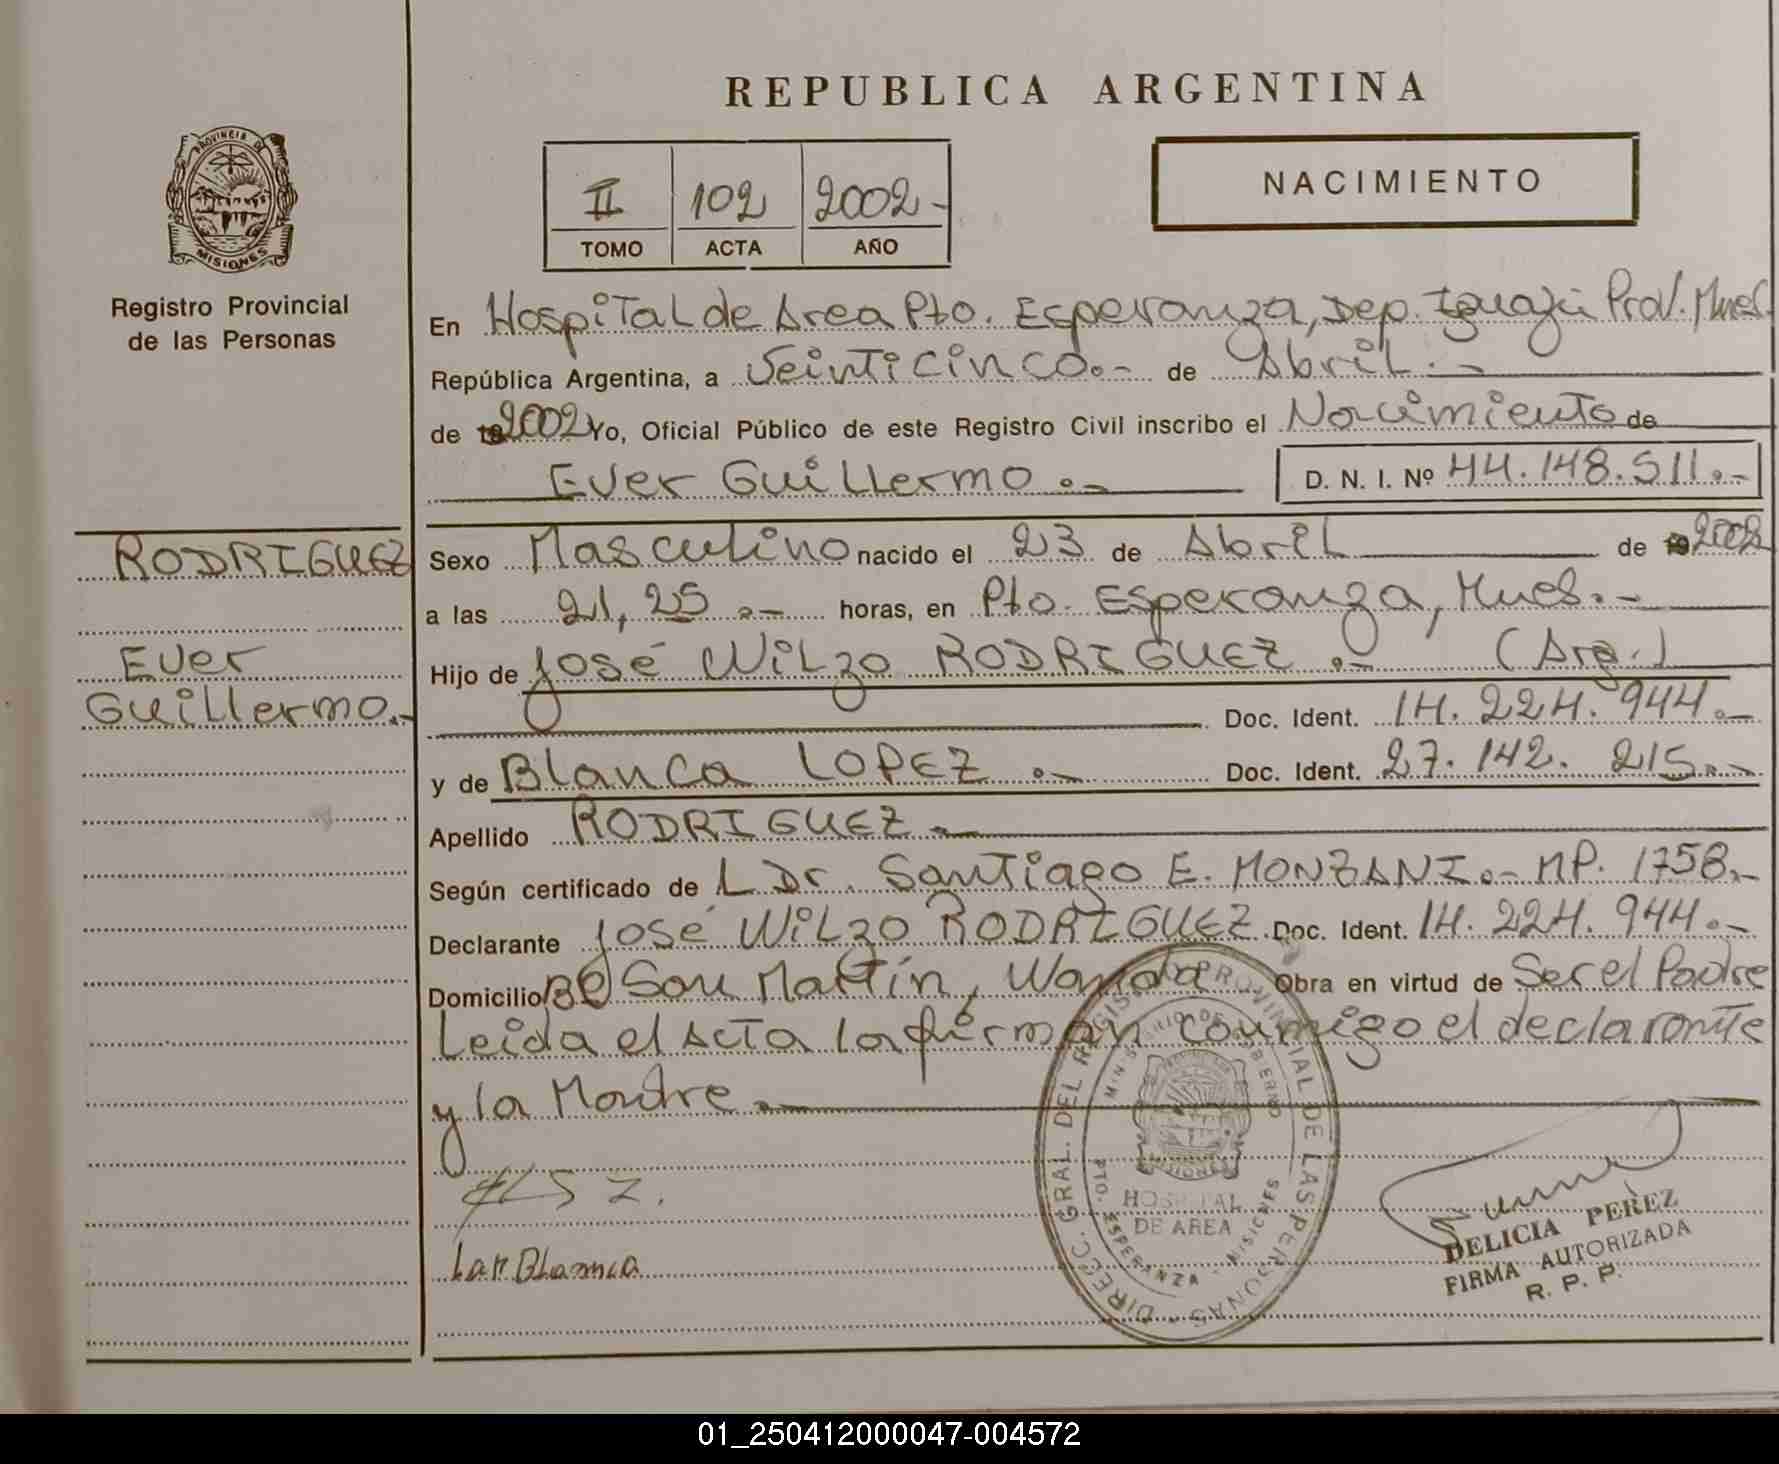 REPUBLICA ARGENTINA
PROVINCIA DE
MISIONES
Registro Provincial
de las Personas
II 102 2002-
TOMO ACTA AÑO
NACIMIENTO
En Hospital de Area Pto. Esperanza, Dep. Iguazú Prov. Mnes.
República Argentina, a Veinticinco.- de Abril.-
de 19 2002 Yo, Oficial Público de este Registro Civil inscribo el Nacimiento de
Ever Guillermo.- D. N. I. Nº 44.148.511.-
RODRIGUEZ
Ever
Guillermo.-
Sexo Masculino nacido el 23 de Abril de 19 2002
a las 21,25.- horas, en Pto. Esperanza, Mnes.-
Hijo de José Wilzo RODRIGUEZ.- (Arg.)
Doc. Ident. 14.224.944.-
y de Blanca LOPEZ.- Doc. Ident. 27.142.215.-
Apellido RODRIGUEZ.-
Según certificado de L Dr. Santiago E. MONZANI.- MP. 1758.-
Declarante José Wilzo RODRIGUEZ Doc. Ident. 14.224.944.-
Domicilio Bº San Martín, Wanda Obra en virtud de Ser el Padre
Leida el Acta la firman conmigo el declarante
y la Madre.-
DIRECC. GRAL. DEL REGISTRO PROVINCIAL DE LAS PERSONAS
MINISTERIO DE GOBIERNO
MISIONES
HOSPITAL
DE AREA
PTO. ESPERANZA - MISIONES
Blanca
DELICIA PEREZ
FIRMA AUTORIZADA
R. P. P.
01_250412000047-004572